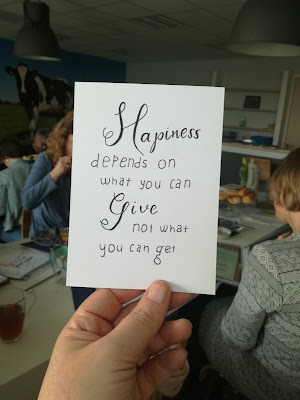 Hapiness
depends on
what you can
Give
not what
you can get